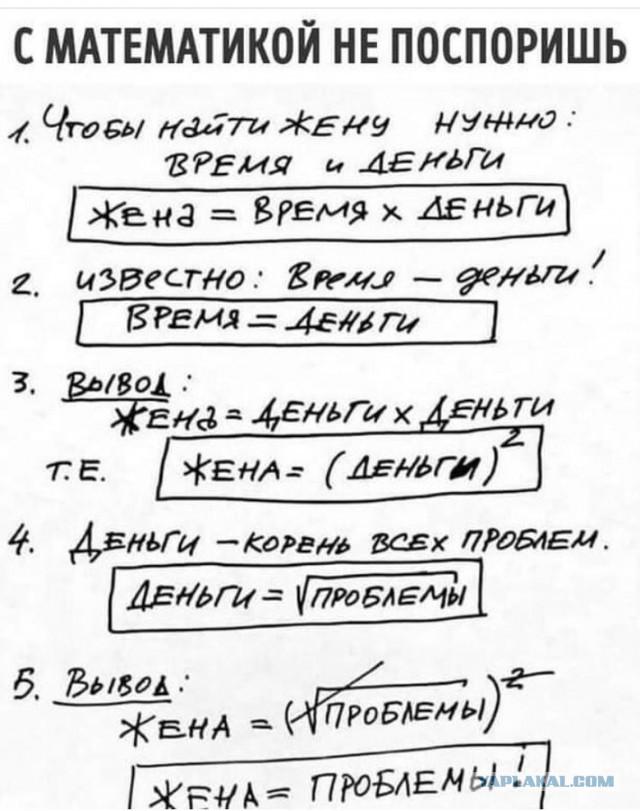 С МАТЕМАТИКОЙ НЕ ПОСПОРИШЬ
1. Чтобы найти жену нужно:
ВРЕМЯ и ДЕНЬГИ
Жена = ВРЕМЯ x ДЕНЬГИ
2. известно: Время – деньги!
ВРЕМЯ = ДЕНЬГИ
3. Вывод:
Жена = ДЕНЬГИ x ДЕНЬГИ
Т.Е. ЖЕНА = (ДЕНЬГИ)²
4. ДЕНЬГИ – КОРЕНЬ ВСЕХ ПРОБЛЕМ.
ДЕНЬГИ = √ПРОБЛЕМЫ
5. Вывод:
ЖЕНА = (√ПРОБЛЕМЫ)²
ЖЕНА = ПРОБЛЕМЫ!
YAPLAKAL.COM